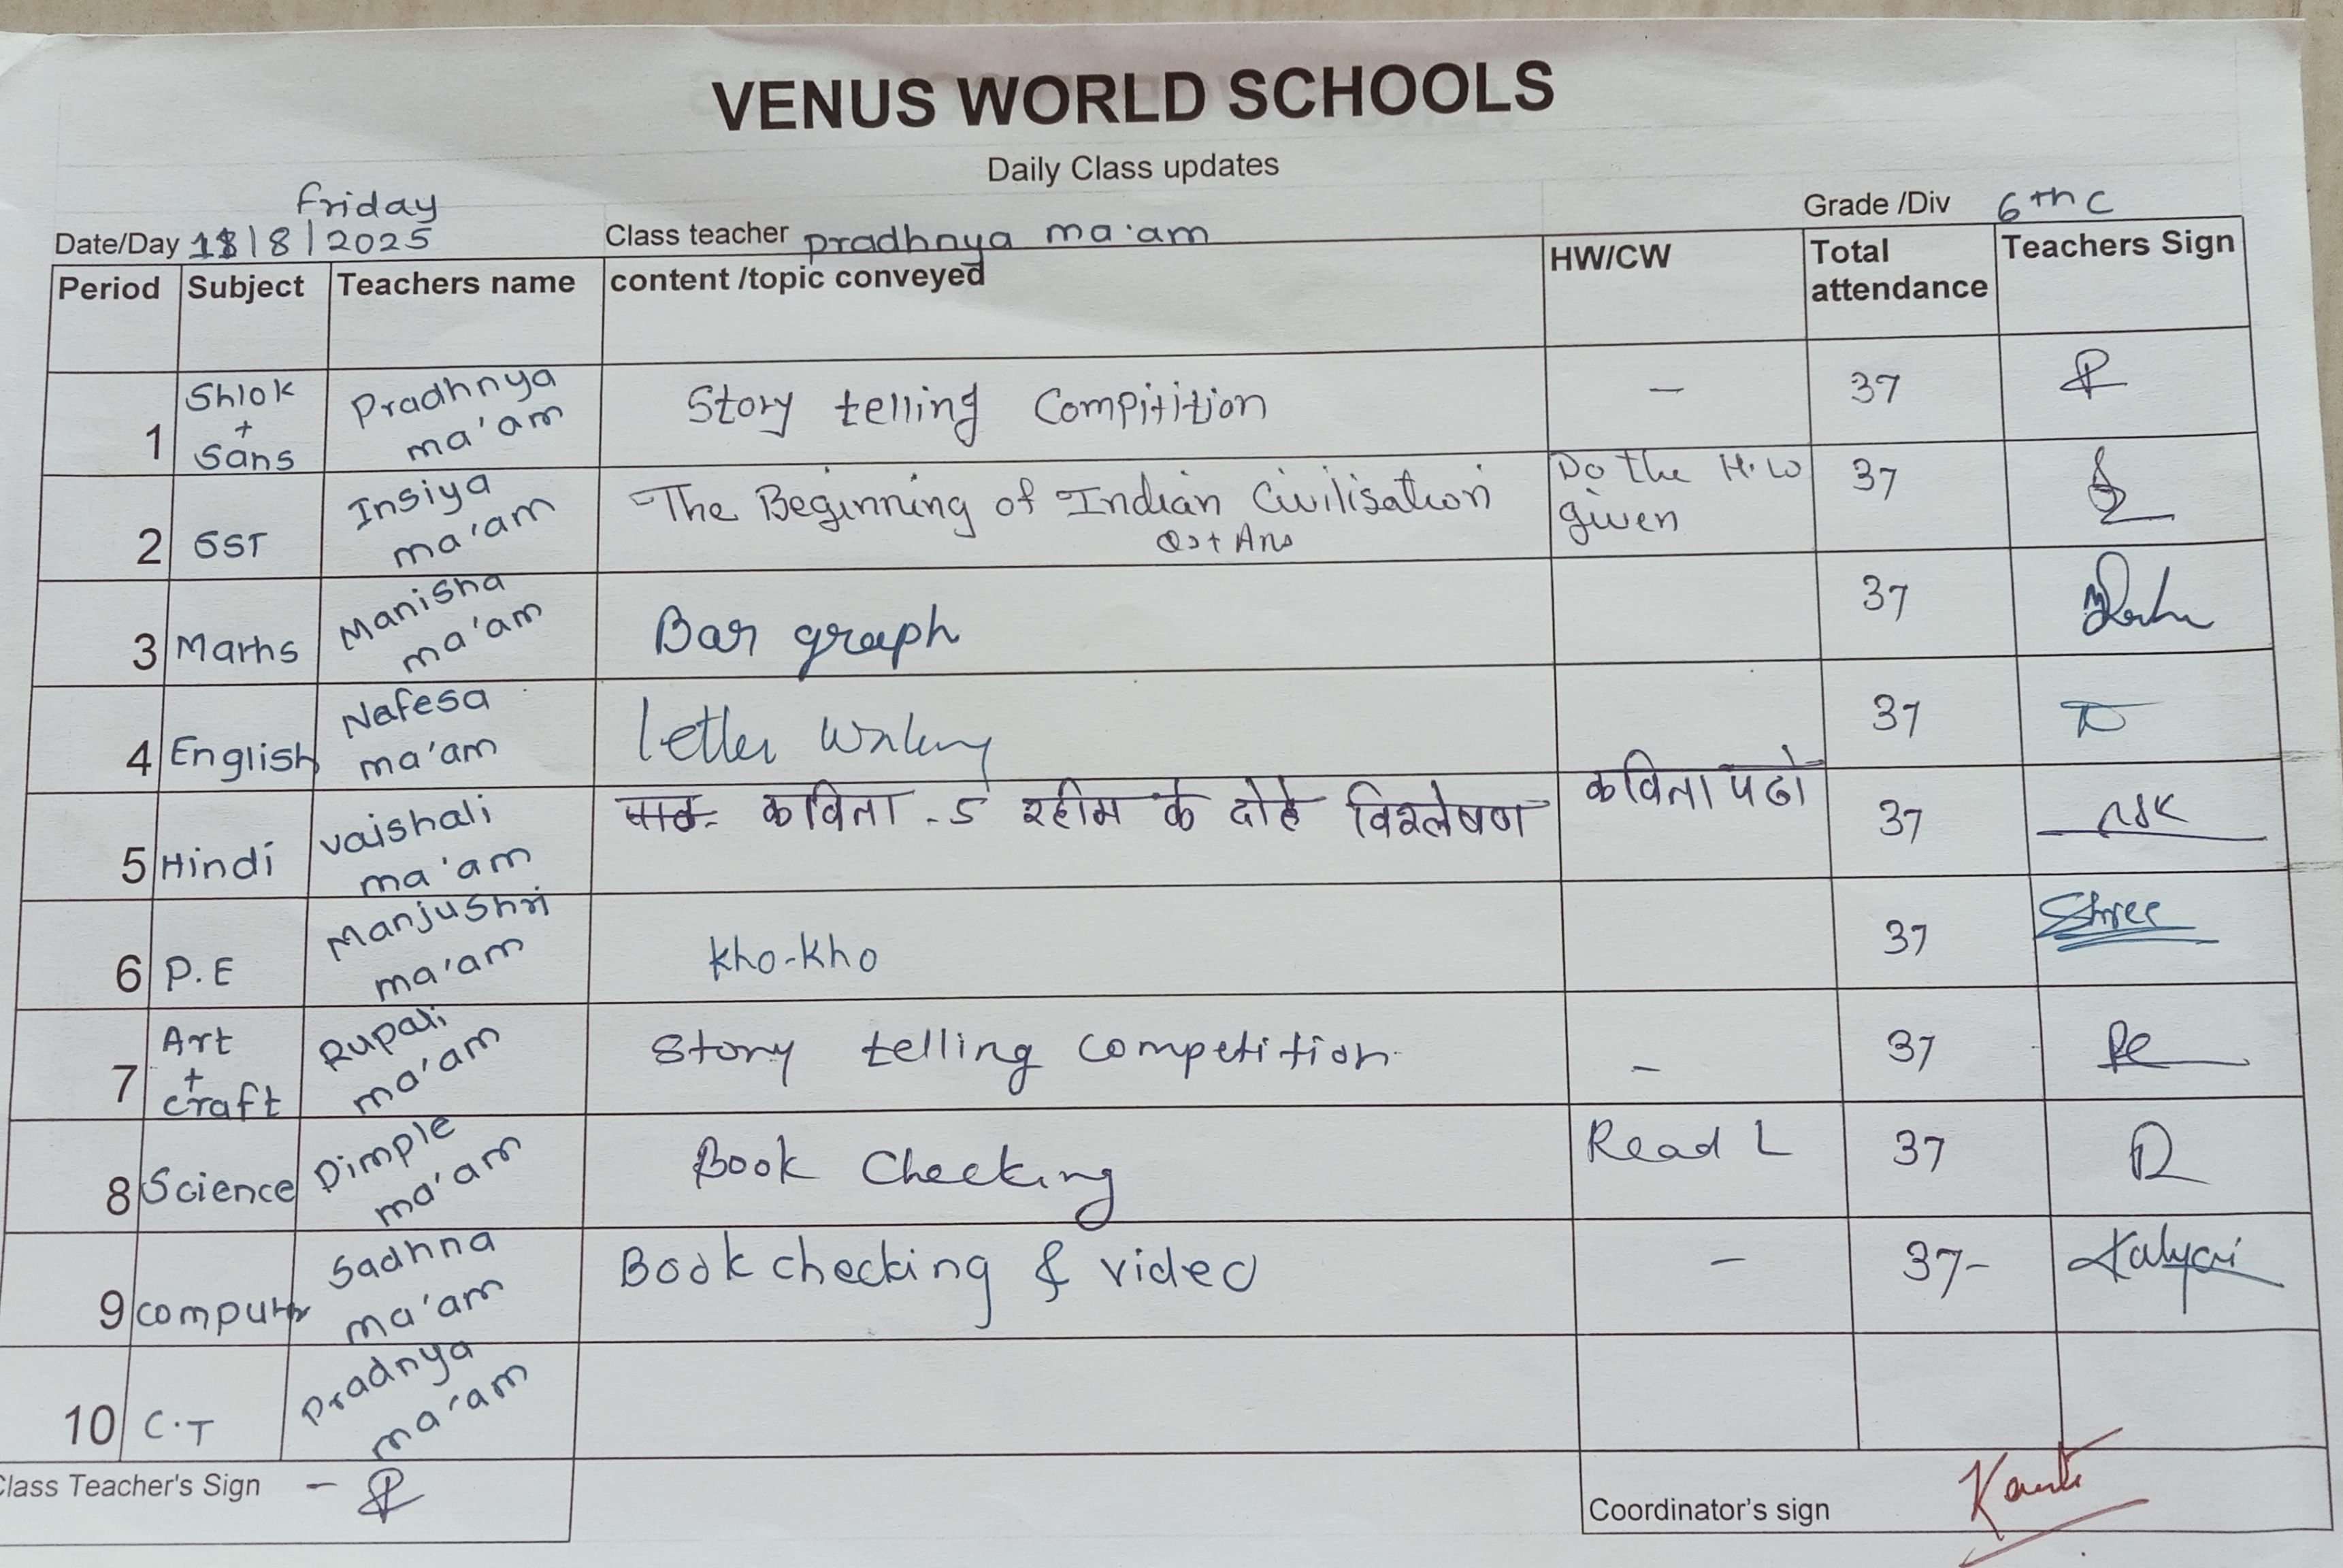 VENUS WORLD SCHOOLS
Daily Class updates
Friday
Date/Day 18/8/2025 Class teacher pradhnya ma'am Grade /Div 6th C
Period Subject Teachers name content /topic conveyed HW/CW Total attendance Teachers Sign
1 Shlok + Sans Pradhnya ma'am Story telling Compitition - 37
2 SST Insiya ma'am The Beginning of Indian Civilisation Do the H.W given 37
Q+ Ans
3 Maths Manisha ma'am Bar graph 37
4 English Nafesa ma'am letter Writing 37
5 Hindi vaishali ma'am कविता - 5 रहीम के दोहे विश्लेषण कविता पढो 37
6 P.E Manjushri ma'am kho-kho 37 Shree
7 Art + craft Rupali ma'am Story telling competition - 37
8 Science Dimple ma'am Book Checking Read L 37
9 computer Sadhna ma'am Book checking & video - 37- Kalyani
10 C.T Pradnya ma'am
Class Teacher's Sign -
Coordinator's sign